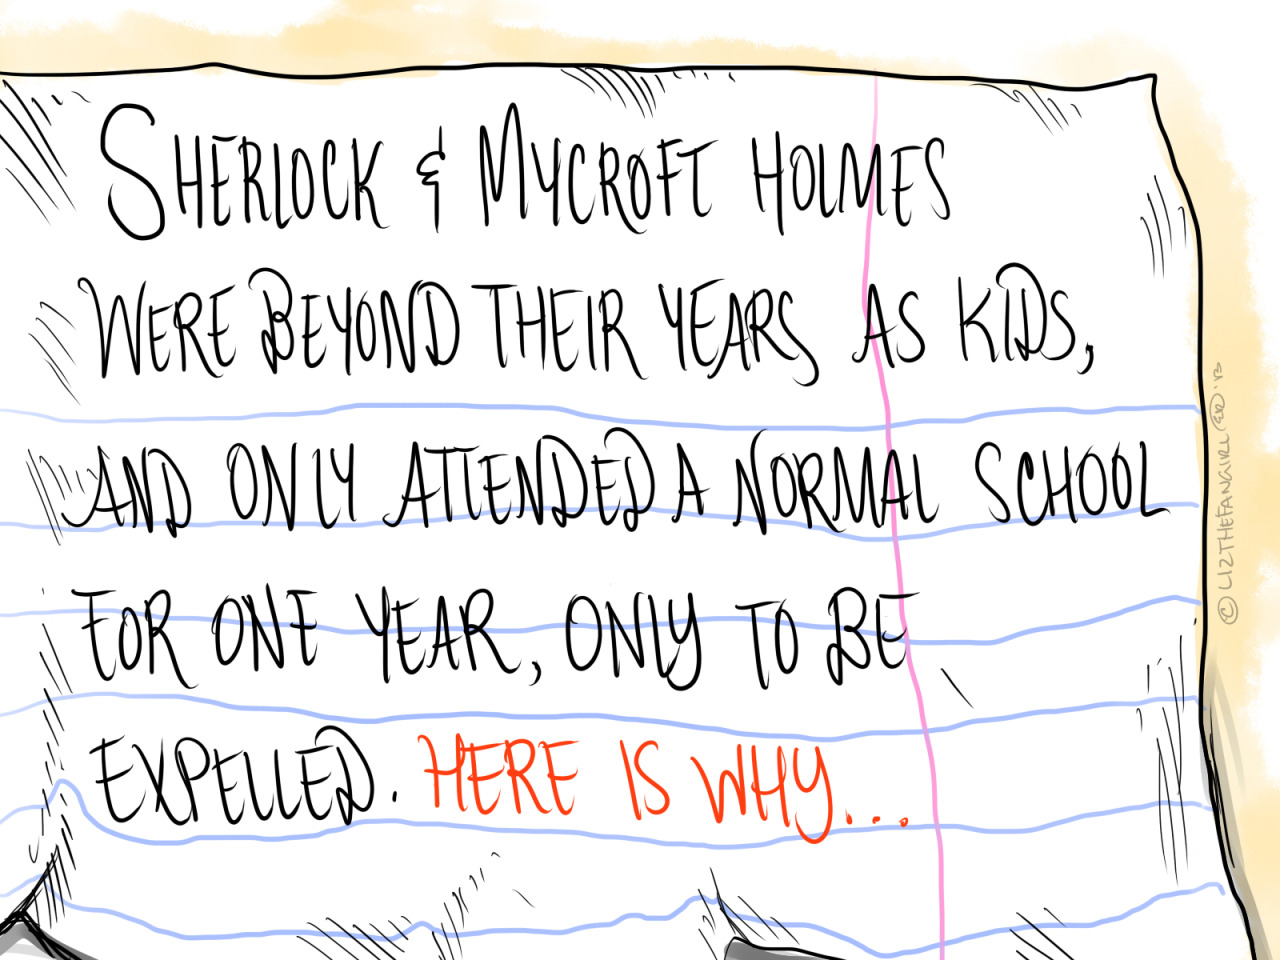 SHERLOCK & MYCROFT HOLMES
WERE BEYOND THEIR YEARS AS KIDS,
AND ONLY ATTENDED A NORMAL SCHOOL
FOR ONE YEAR, ONLY TO BE
EXPELLED. HERE IS WHY...
© LIZTHEFANGIRL (ER) '13